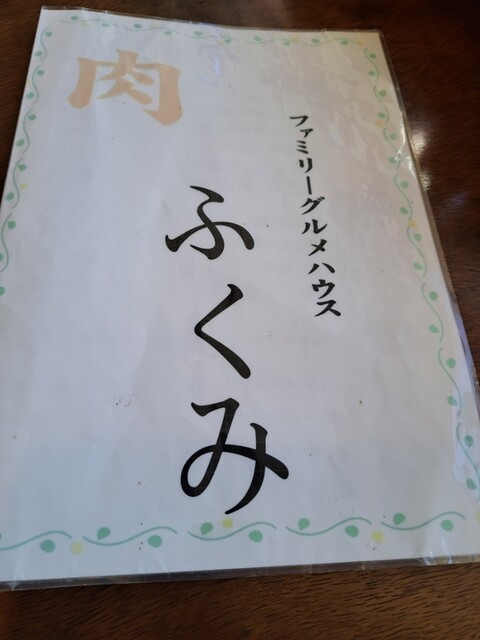 肉
ファミリーグルメハウス
ふくみ